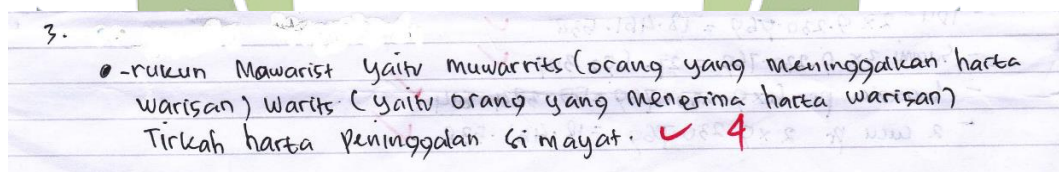 3.
•-rukun Mawarist yaitu muwarrits (orang yang meninggalkan harta
warisan) warits (yaitu orang yang menerima harta warisan)
Tirkah harta peninggalan si mayat. ✓ 4